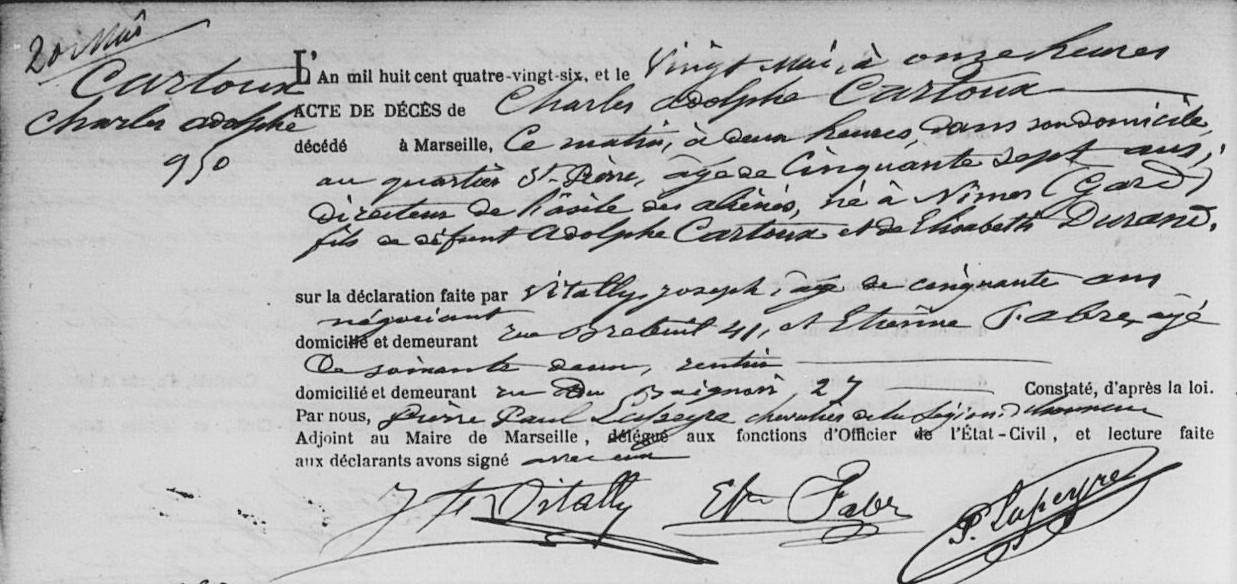 20 Mai
Cartoux
Charles Adolphe
950
L'An mil huit cent quatre-vingt-six, et le Vingt Mai, à onze heures
ACTE DE DÉCÈS de Charles Adolphe Cartoux
décédé à Marseille, Ce matin, à deux heures, dans son domicile,
au quartier St. Pierre, âgé de Cinquante sept ans,
Directeur de l'asile des aliénés, né à Nimes (Gard)
fils de défunt Adolphe Cartoux et de Elisabeth Durand.
sur la déclaration faite par Vitally, Joseph, âgé de cinquante ans
négociant
domicilié et demeurant rue Breteuil 41, et Etienne Fabre, âgé
De soixante deux, rentier
domicilié et demeurant rue Du 27 Constaté, d'après la loi.
Par nous, Pierre Paul Lapeyre chevalier de la Légion d'honneur
Adjoint au Maire de Marseille, délégué aux fonctions d'Officier de l'État-Civil, et lecture faite
aux déclarants avons signé avec eux
J Vitally Etne Fabre P. Lapeyre